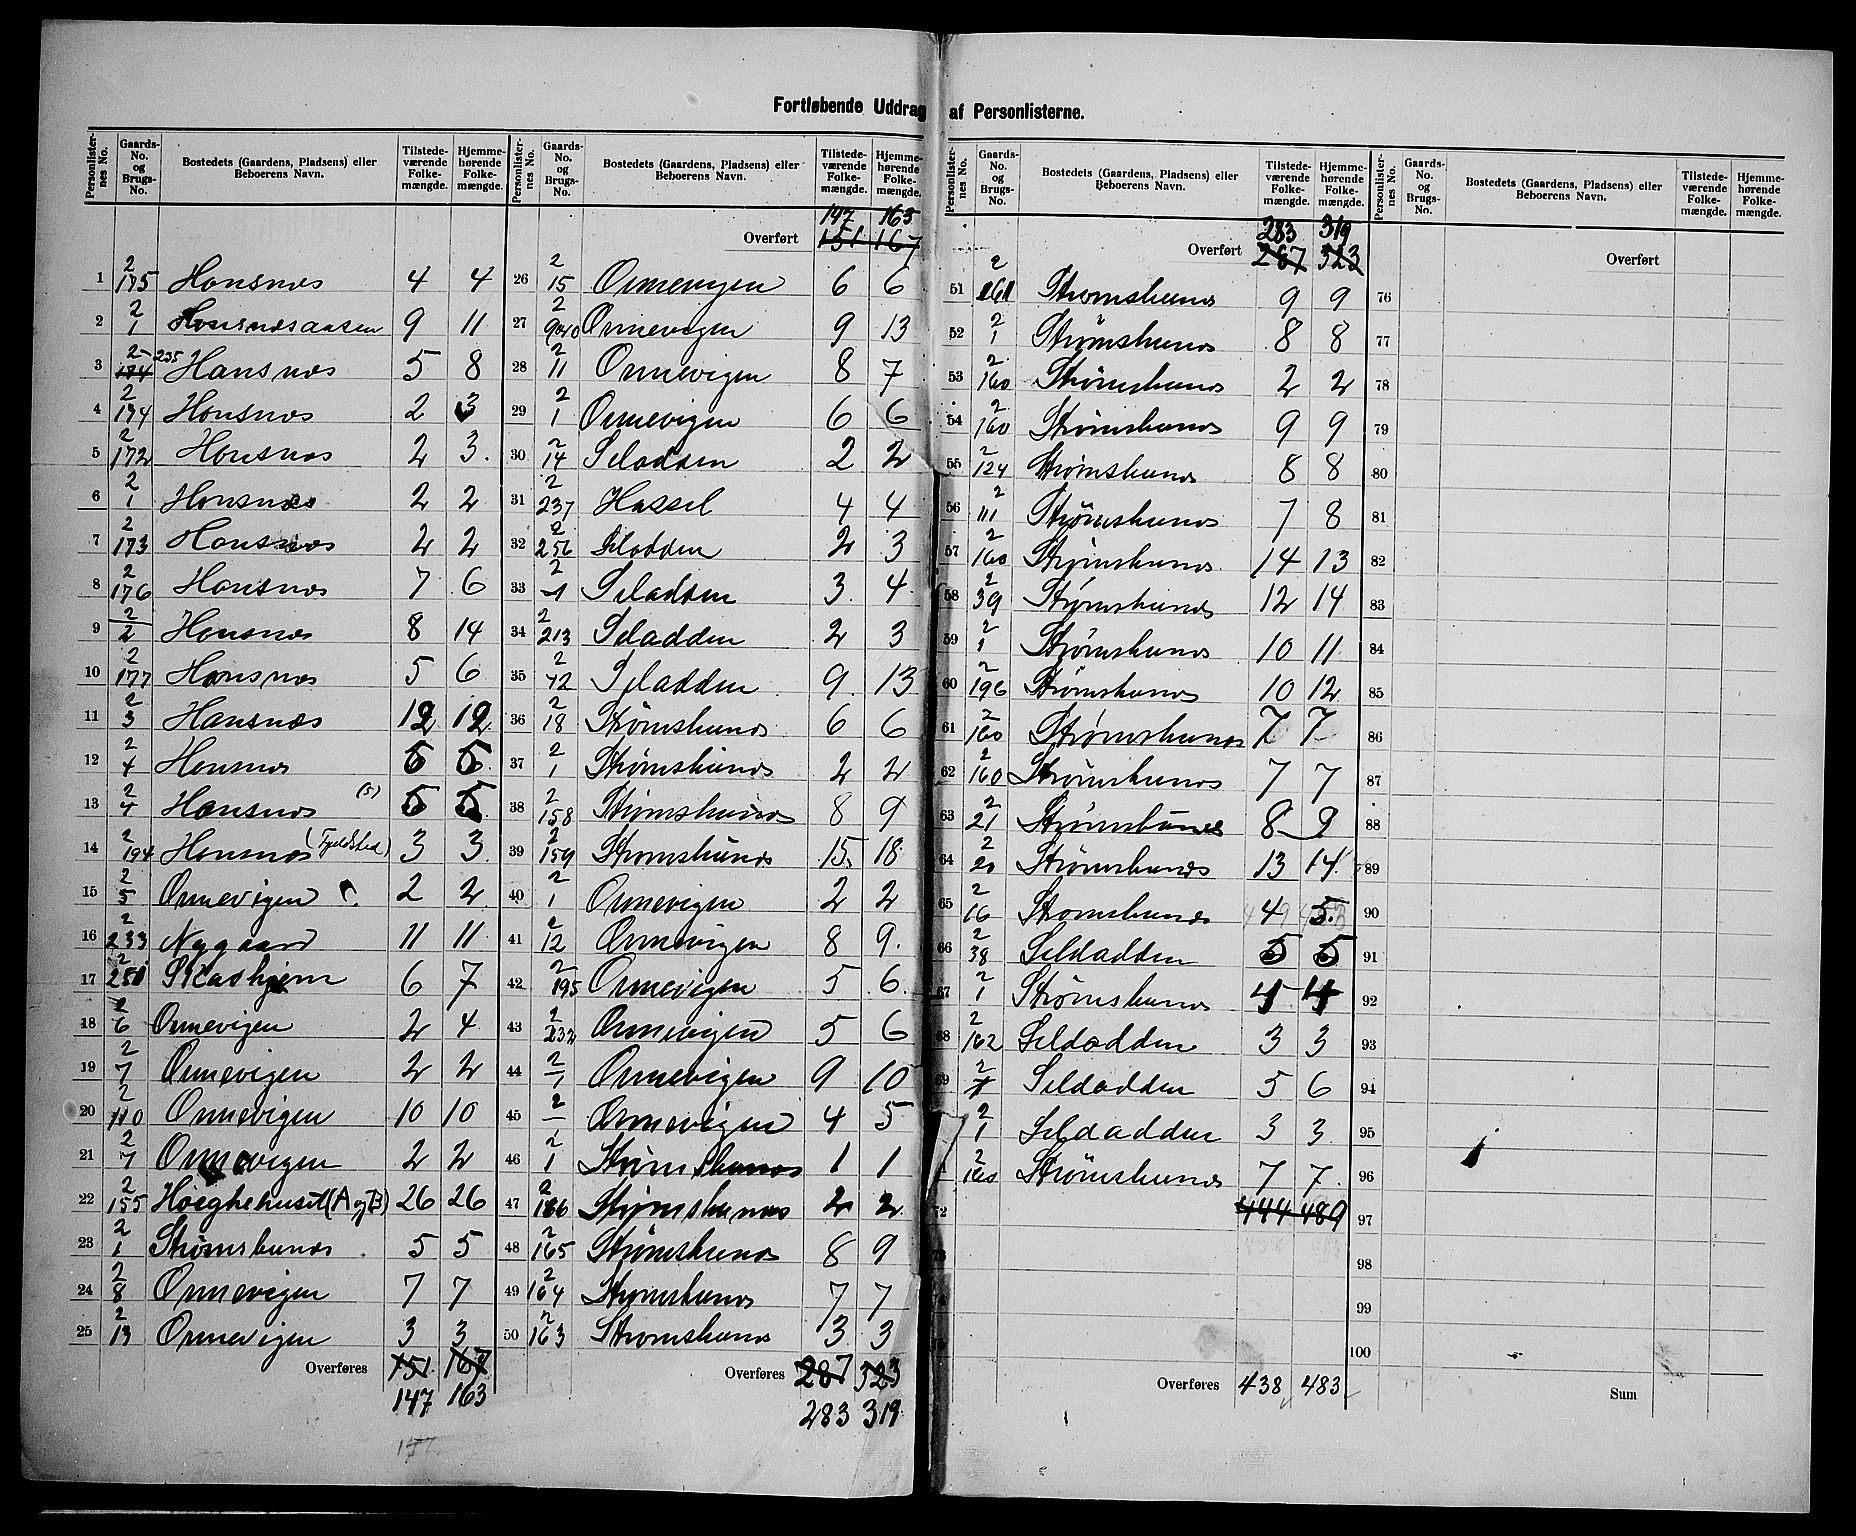 Fortløbende Uddrag af Personlisterne.
Personlisternes No. Gaards-No. og Brugs-No. Bostedets (Gaardens, Pladsens) eller Beboerens Navn. Tilstedeværende Folkemængde. Hjemmehørende Folkemængde.
1 2/175 Hansnæs 4 4
2 2/1 Hansnæsaasen 9 11
3 2/174 235 Hansnæs 5 8
4 2/174 Hansnæs 2 3
5 2/172 Hansnæs 2 3
6 2/1 Hansnæs 2 2
7 2/173 Hansnæs 2 2
8 2/176 Hansnæs 7 6
9 2/2 Hansnæs 8 14
10 2/177 Hansnæs 5 6
11 2/3 Hansnæs 12 12
12 2/4 Hansnæs 5 5
13 2/4 Hansnæs (5) 5 5
14 2/194 Hansnæs (Fjeldstad) 3 3
15 2/5 Ormevigen 2 2
16 2/233 Nygaard 11 11
17 2/251 Skarhjem 6 7
18 2/6 Ormevigen 2 4
19 2/7 Ormevigen 2 2
20 2/110 Ormevigen 10 10
21 2/7 Ormevigen 2 2
22 2/155 Høeghehuset (A og B) 26 26
23 2/1 Strømsbunæs 5 5
24 2/8 Ormevigen 7 7
25 2/13 Ormevigen 3 3
Overføres 151 167
147 163
Personlisternes No. Gaards-No. og Brugs-No. Bostedets (Gaardens, Pladsens) eller Beboerens Navn. Tilstedeværende Folkemængde. Hjemmehørende Folkemængde.
147 163
Overført 151 167
26 2/15 Ormevigen 6 6
27 2/9 Ormevigen 9 13
28 2/11 Ormevigen 8 7
29 2/1 Ormevigen 6 6
30 2/14 Seladden 2 2
31 2/237 Hassel 4 4
32 2/256 Seladden 2 3
33 2/1 Seladden 3 4
34 2/213 Seladden 2 3
35 2/42 Seladden 9 13
36 2/18 Strømsbunæs 6 6
37 2/1 Strømsbunæs 2 2
38 2/158 Strømsbunæs 8 9
39 2/159 Strømsbunæs 15 18
40 2/1 Ormevigen 2 2
41 2/12 Ormevigen 8 9
42 2/195 Ormevigen 5 6
43 2/232 Ormevigen 5 6
44 2/1 Ormevigen 9 10
45 2/– Ormevigen 4 5
46 2/1 Strømsbunæs 1 1
47 2/166 Strømsbunæs 2 2
48 2/165 Strømsbunæs 8 9
49 2/164 Strømsbunæs 7 7
50 2/163 Strømsbunæs 3 3
Overføres 287 323
283 319
Personlisternes No. Gaards-No. og Brugs-No. Bostedets (Gaardens, Pladsens) eller Beboerens Navn. Tilstedeværende Folkemængde. Hjemmehørende Folkemængde.
283 319
Overført 287 323
51 2/161 Strømsbunæs 9 9
52 2/1 Strømsbunæs 8 8
53 2/160 Strømsbunæs 2 2
54 2/160 Strømsbunæs 9 9
55 2/124 Strømsbunæs 8 8
56 2/111 Strømsbunæs 7 8
57 2/160 Strømsbunæs 14 13
58 2/39 Strømsbunæs 12 14
59 2/1 Strømsbunæs 10 11
60 2/196 Strømsbunæs 10 12
61 2/160 Strømsbunæs 7 7
62 2/160 Strømsbunæs 7 7
63 2/21 Strømsbunæs 8 9
64 2/20 Strømsbunæs 13 14
65 2/16 Strømsbunæs 4 5
66 2/38 Seldadden 5 5
67 2/1 Strømsbunæs 4 4
68 2/162 Seldadden 3 3
69 2/1 Seldadden 5 6
2/1 Seldadden 3 3
2/160 Strømsbunæs 7 7
72 444 489
Overføres 438 483
Personlisternes No. Gaards-No. og Brugs-No. Bostedets (Gaardens, Pladsens) eller Beboerens Navn. Tilstedeværende Folkemængde. Hjemmehørende Folkemængde.
Overført
76
77
78
79
80
81
82
83
84
85
86
87
88
89
90
91
92
93
94
95
96
97
98
99
100
Sum